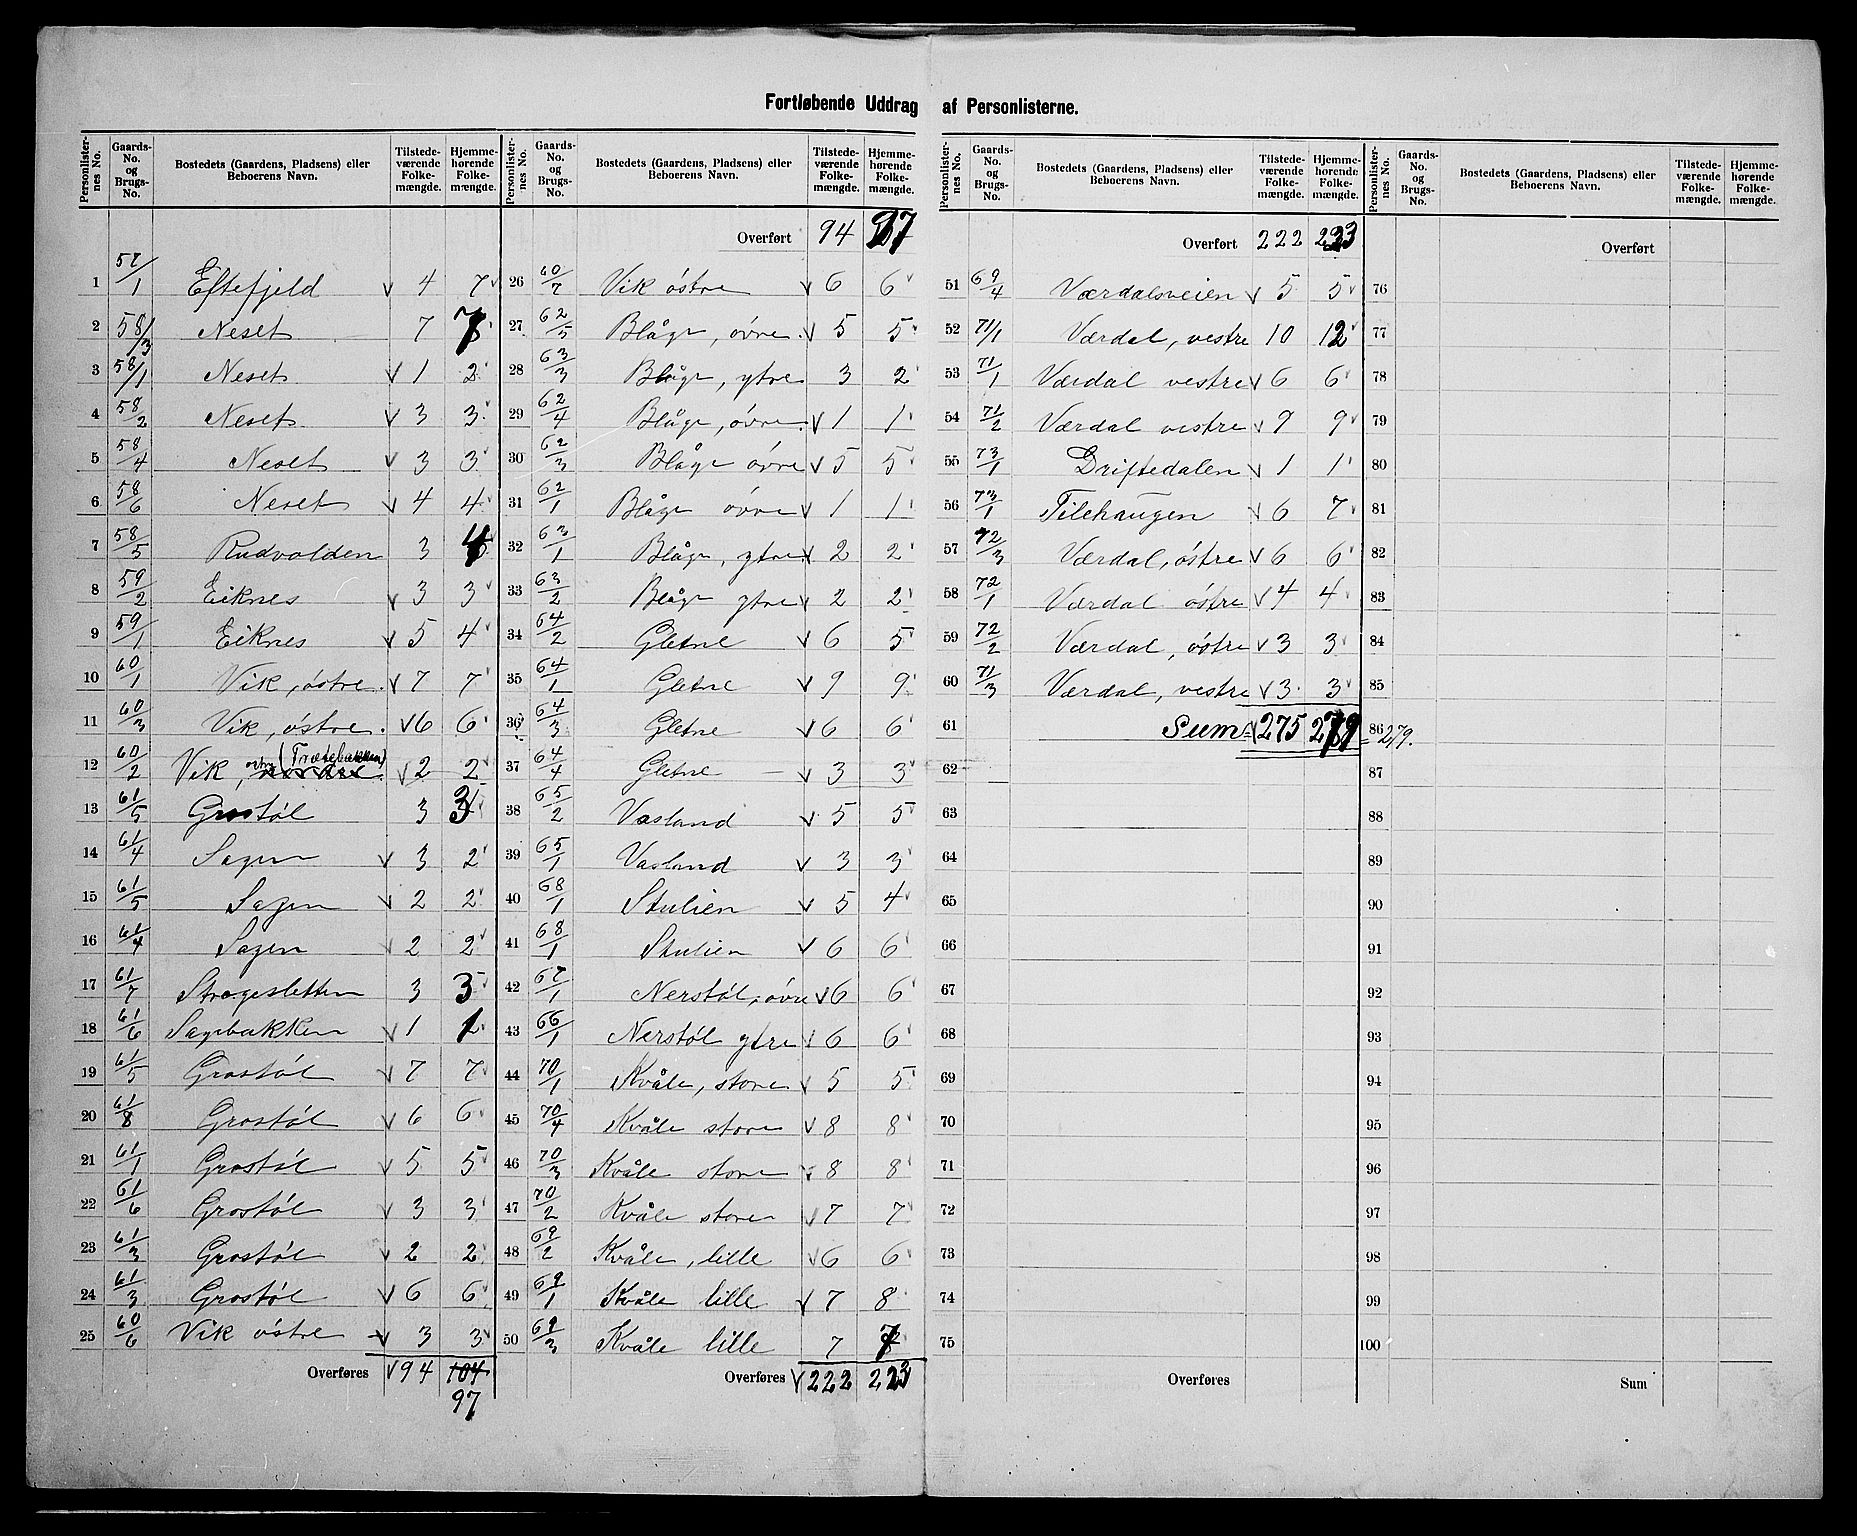 Fortløbende Uddrag af Personlisterne.
Personlister-nes No. | Gaards-No. og Brugs-No. | Bostedets (Gaardens, Pladsens) eller Beboerens Navn. | Tilstede-værende Folke-mængde. | Hjemme-hørende Folke-mængde.
1 57/1 Eftefjeld 4 7
2 58/3 Neset 7 7
3 58/1 Neset 1 2
4 58/2 Neset 3 3
5 58/4 Neset 3 3
6 58/6 Neset 4 4
7 58/5 Rudvolden 3 4
8 59/2 Eiknes 3 3
9 59/1 Eiknes 5 4
10 60/1 Vik, østre 7 7
11 60/3 Vik, østre 6 6
12 60/2 Vik, østre (Træsebakken) 2 2
13 61/5 Grostøl 3 3
14 61/4 Sagen 3 2
15 61/5 Sagen 2 2
16 61/4 Sagen 2 2
17 61/7 Strægesletten 3 3
18 61/6 Sagebakken 1 1
19 61/5 Grostøl 7 7
20 61/8 Grostøl 6 6
21 61/1 Grostøl 5 5
22 61/6 Grostøl 3 3
23 61/3 Grostøl 2 2
24 61/3 Grostøl 6 6
25 60/6 Vik østre 3 3
Overføres 94 104
97
Personlister-nes No. | Gaards-No. og Brugs-No. | Bostedets (Gaardens, Pladsens) eller Beboerens Navn. | Tilstede-værende Folke-mængde. | Hjemme-hørende Folke-mængde.
Overført 94 97
26 60/7 Vik østre 6 6
27 62/5 Blåge, øvre 5 5
28 63/3 Blåge, ytre 3 2
29 62/4 Blåge, øvre 1 1
30 62/3 Blåge øvre 5 5
31 62/1 Blåge øvre 1 1
32 63/1 Blåge, ytre 2 2
33 63/2 Blåge ytre 2 2
34 64/2 Gletne 6 5
35 64/1 Gletne 9 9
36 64/3 Gletne 6 6
37 64/4 Gletne 3 3
38 65/2 Vasland 5 5
39 65/1 Vasland 3 3
40 68/1 Stulien 5 4
41 68/1 Stulien 6 6
42 67/1 Nerstøl, øvre 6 6
43 66/1 Nerstøl ytre 6 6
44 70/1 Kvåle, store 5 5
45 70/4 Kvåle store 8 8
46 70/3 Kvåle store 8 8
47 70/2 Kvåle store 7 7
48 69/2 Kvåle, lille 6 6
49 69/1 Kvåle lille 7 8
50 69/3 Kvåle lille 7 7
Overføres 222 223
Personlister-nes No. | Gaards-No. og Brugs-No. | Bostedets (Gaardens, Pladsens) eller Beboerens Navn. | Tilstede-værende Folke-mængde. | Hjemme-hørende Folke-mængde.
Overført 222 223
51 69/4 Værdalsveien 5 5
52 71/1 Værdal, vestre 10 12
53 71/1 Værdal vestre 6 6
54 71/2 Værdal vestre 9 9
55 73/1 Driftedalen 1 1
56 73/1 Tilehaugen 6 7
57 72/3 Værdal, østre 6 6
58 72/1 Værdal østre 4 4
59 72/2 Værdal, østre 3 3
60 71/3 Værdal, vestre 3 3
61 Sum 275 279
62
63
64
65
66
67
68
69
70
71
72
73
74
75
Overføres
Personlister-nes No. | Gaards-No. og Brugs-No. | Bostedets (Gaardens, Pladsens) eller Beboerens Navn. | Tilstede-værende Folke-mængde. | Hjemme-hørende Folke-mængde.
Overført
76
77
78
79
80
81
82
83
84
85
86 = 279.
87
88
89
90
91
92
93
94
95
96
97
98
99
100
Sum